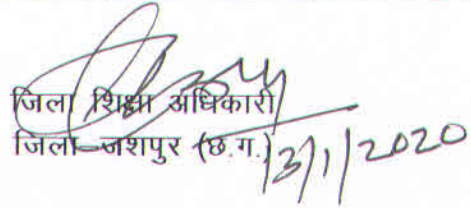 जिला शिक्षा अधिकारी
जिला जशपुर (छ.ग.)
13/1/2020